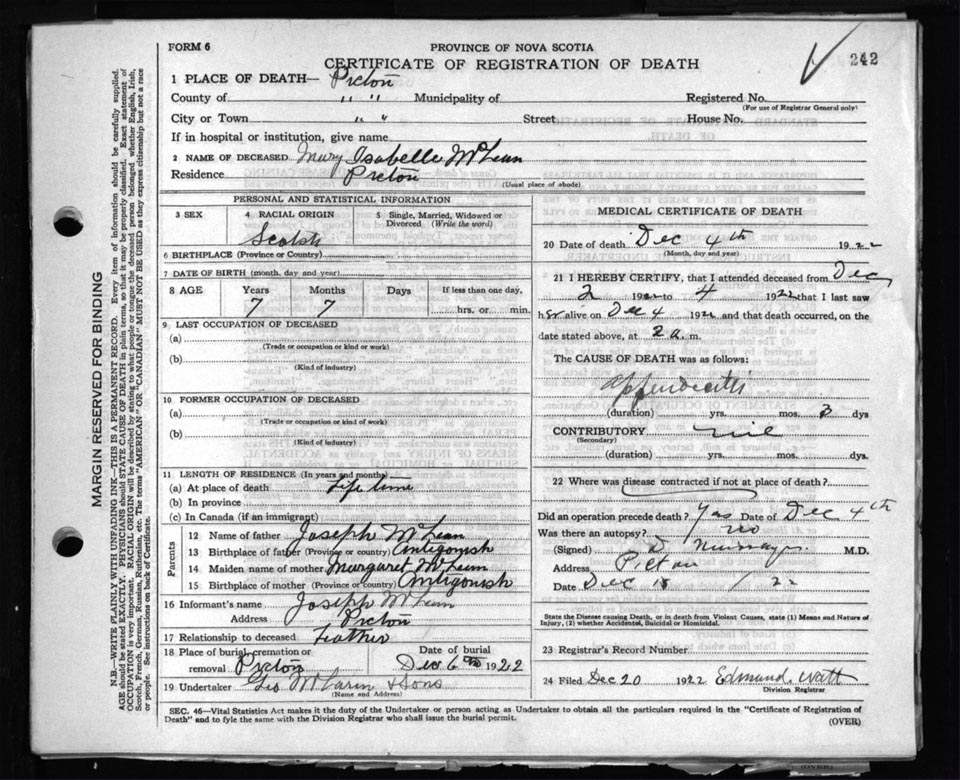 FORM 6
PROVINCE OF NOVA SCOTIA
CERTIFICATE OF REGISTRATION OF DEATH
242
1 PLACE OF DEATH— Pictou
County of " " Municipality of Registered No.
(For use of Registrar General only)
City or Town " " Street House No.
If in hospital or institution, give name
2 NAME OF DECEASED Mary Isabelle McLean
Residence Pictou
(Usual place of abode)
PERSONAL AND STATISTICAL INFORMATION
3 SEX
4 RACIAL ORIGIN
Scotch
5 Single, Married, Widowed or Divorced (Write the word)
6 BIRTHPLACE (Province or Country)
7 DATE OF BIRTH (month, day and year)
8 AGE Years Months Days If less than one day,
7 7 hrs. or min.
9 LAST OCCUPATION OF DECEASED
(a)
(Trade or occupation or kind or work)
(b)
(Kind of industry)
10 FORMER OCCUPATION OF DECEASED
(a)
(Trade or occupation or kind of work)
(b)
(Kind of industry)
11 LENGTH OF RESIDENCE (In years and months)
(a) At place of death Life time
(b) In province
(c) In Canada (if an immigrant)
Parents
12 Name of father Joseph McLean
13 Birthplace of father (Province or country) Antigonish
14 Maiden name of mother Margaret McLean
15 Birthplace of mother (Province or country) Antigonish
16 Informant's name Joseph McLean
Address Pictou
17 Relationship to deceased Father
18 Place of burial, cremation or removal Pictou
Date of burial Dec 6 1922
19 Undertaker Geo McLaren & Sons
(Name and Address)
MEDICAL CERTIFICATE OF DEATH
20 Date of death Dec 4th 1922
(Month, day and year)
21 I HEREBY CERTIFY, that I attended deceased from Dec
2 1922 to 4 1922 that I last saw
her alive on Dec 4 1922 and that death occurred, on
date stated above, at 2 a. m.
The CAUSE OF DEATH was as follows:
Appendicitis
(duration) yrs. mos. 3 dys
CONTRIBUTORY nil
(Secondary)
(duration) yrs. mos. dys.
22 Where was disease contracted if not at place of death?
Did an operation precede death? Yes Date of Dec 4th
Was there an autopsy? no
(Signed) M.D.
Address Pictou
Date Dec 22
State the Disease causing Death, or in death from Violent Causes, state (1) Means and Nature of Injury, (2) whether Accidental, Suicidal or Homicidal.
23 Registrar's Record Number
24 Filed Dec 20 1922 Edmund Watt
Division Registrar
SEC. 46—Vital Statistics Act makes it the duty of the Undertaker or person acting as Undertaker to obtain all the particulars required in the "Certificate of Registration of
Death" and to fyle the same with the Division Registrar who shall issue the burial permit.
(OVER)
MARGIN RESERVED FOR BINDING
N.B.—WRITE PLAINLY WITH UNFADING INK—THIS IS A PERMANENT RECORD. Every item of information should be carefully supplied.
AGE should be stated EXACTLY. PHYSICIANS should STATE CAUSE OF DEATH in plain terms, so that it may be properly classified. Exact statement of
OCCUPATION is very important. RACIAL ORIGIN will be described by stating to what people or tongue the deceased person belonged whether English, Irish,
Scotch, French, German, Russian, Ruthenian, etc. The terms "AMERICAN" OR "CANADIAN" MUST NOT BE USED as they express citizenship but not a race
or people. See instructions on back of Certificate.
(OVER)